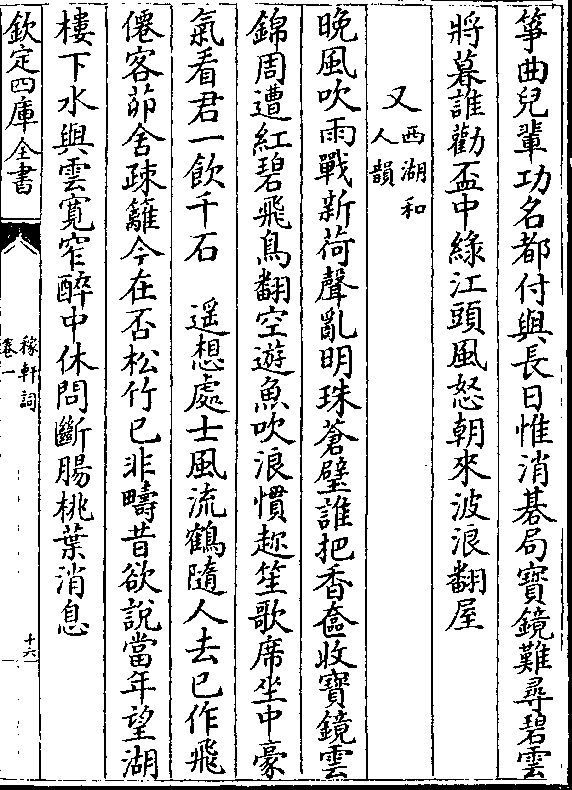 箏曲兒輩功名都付與長日惟消碁局寳鏡難尋碧雲
將暮誰勸盃中緑江頭風怒朝來波浪翻屋
又西湖和
人韻
晚風吹雨戰新荷聲亂明珠蒼璧誰把香奩收寳鏡雲
錦周遭紅碧飛鳥翻空遊魚吹浪慣趂笙歌席坐中豪
氣看君一飲千石　遥想處士風流鶴隨人去已作飛
僊客茆舍疎籬今在否松竹已非疇昔欲說當年望湖
樓下水與雲寛窄醉中休問斷腸桃葉消息
欽定四庫全書
稼軒詞
卷一
十六